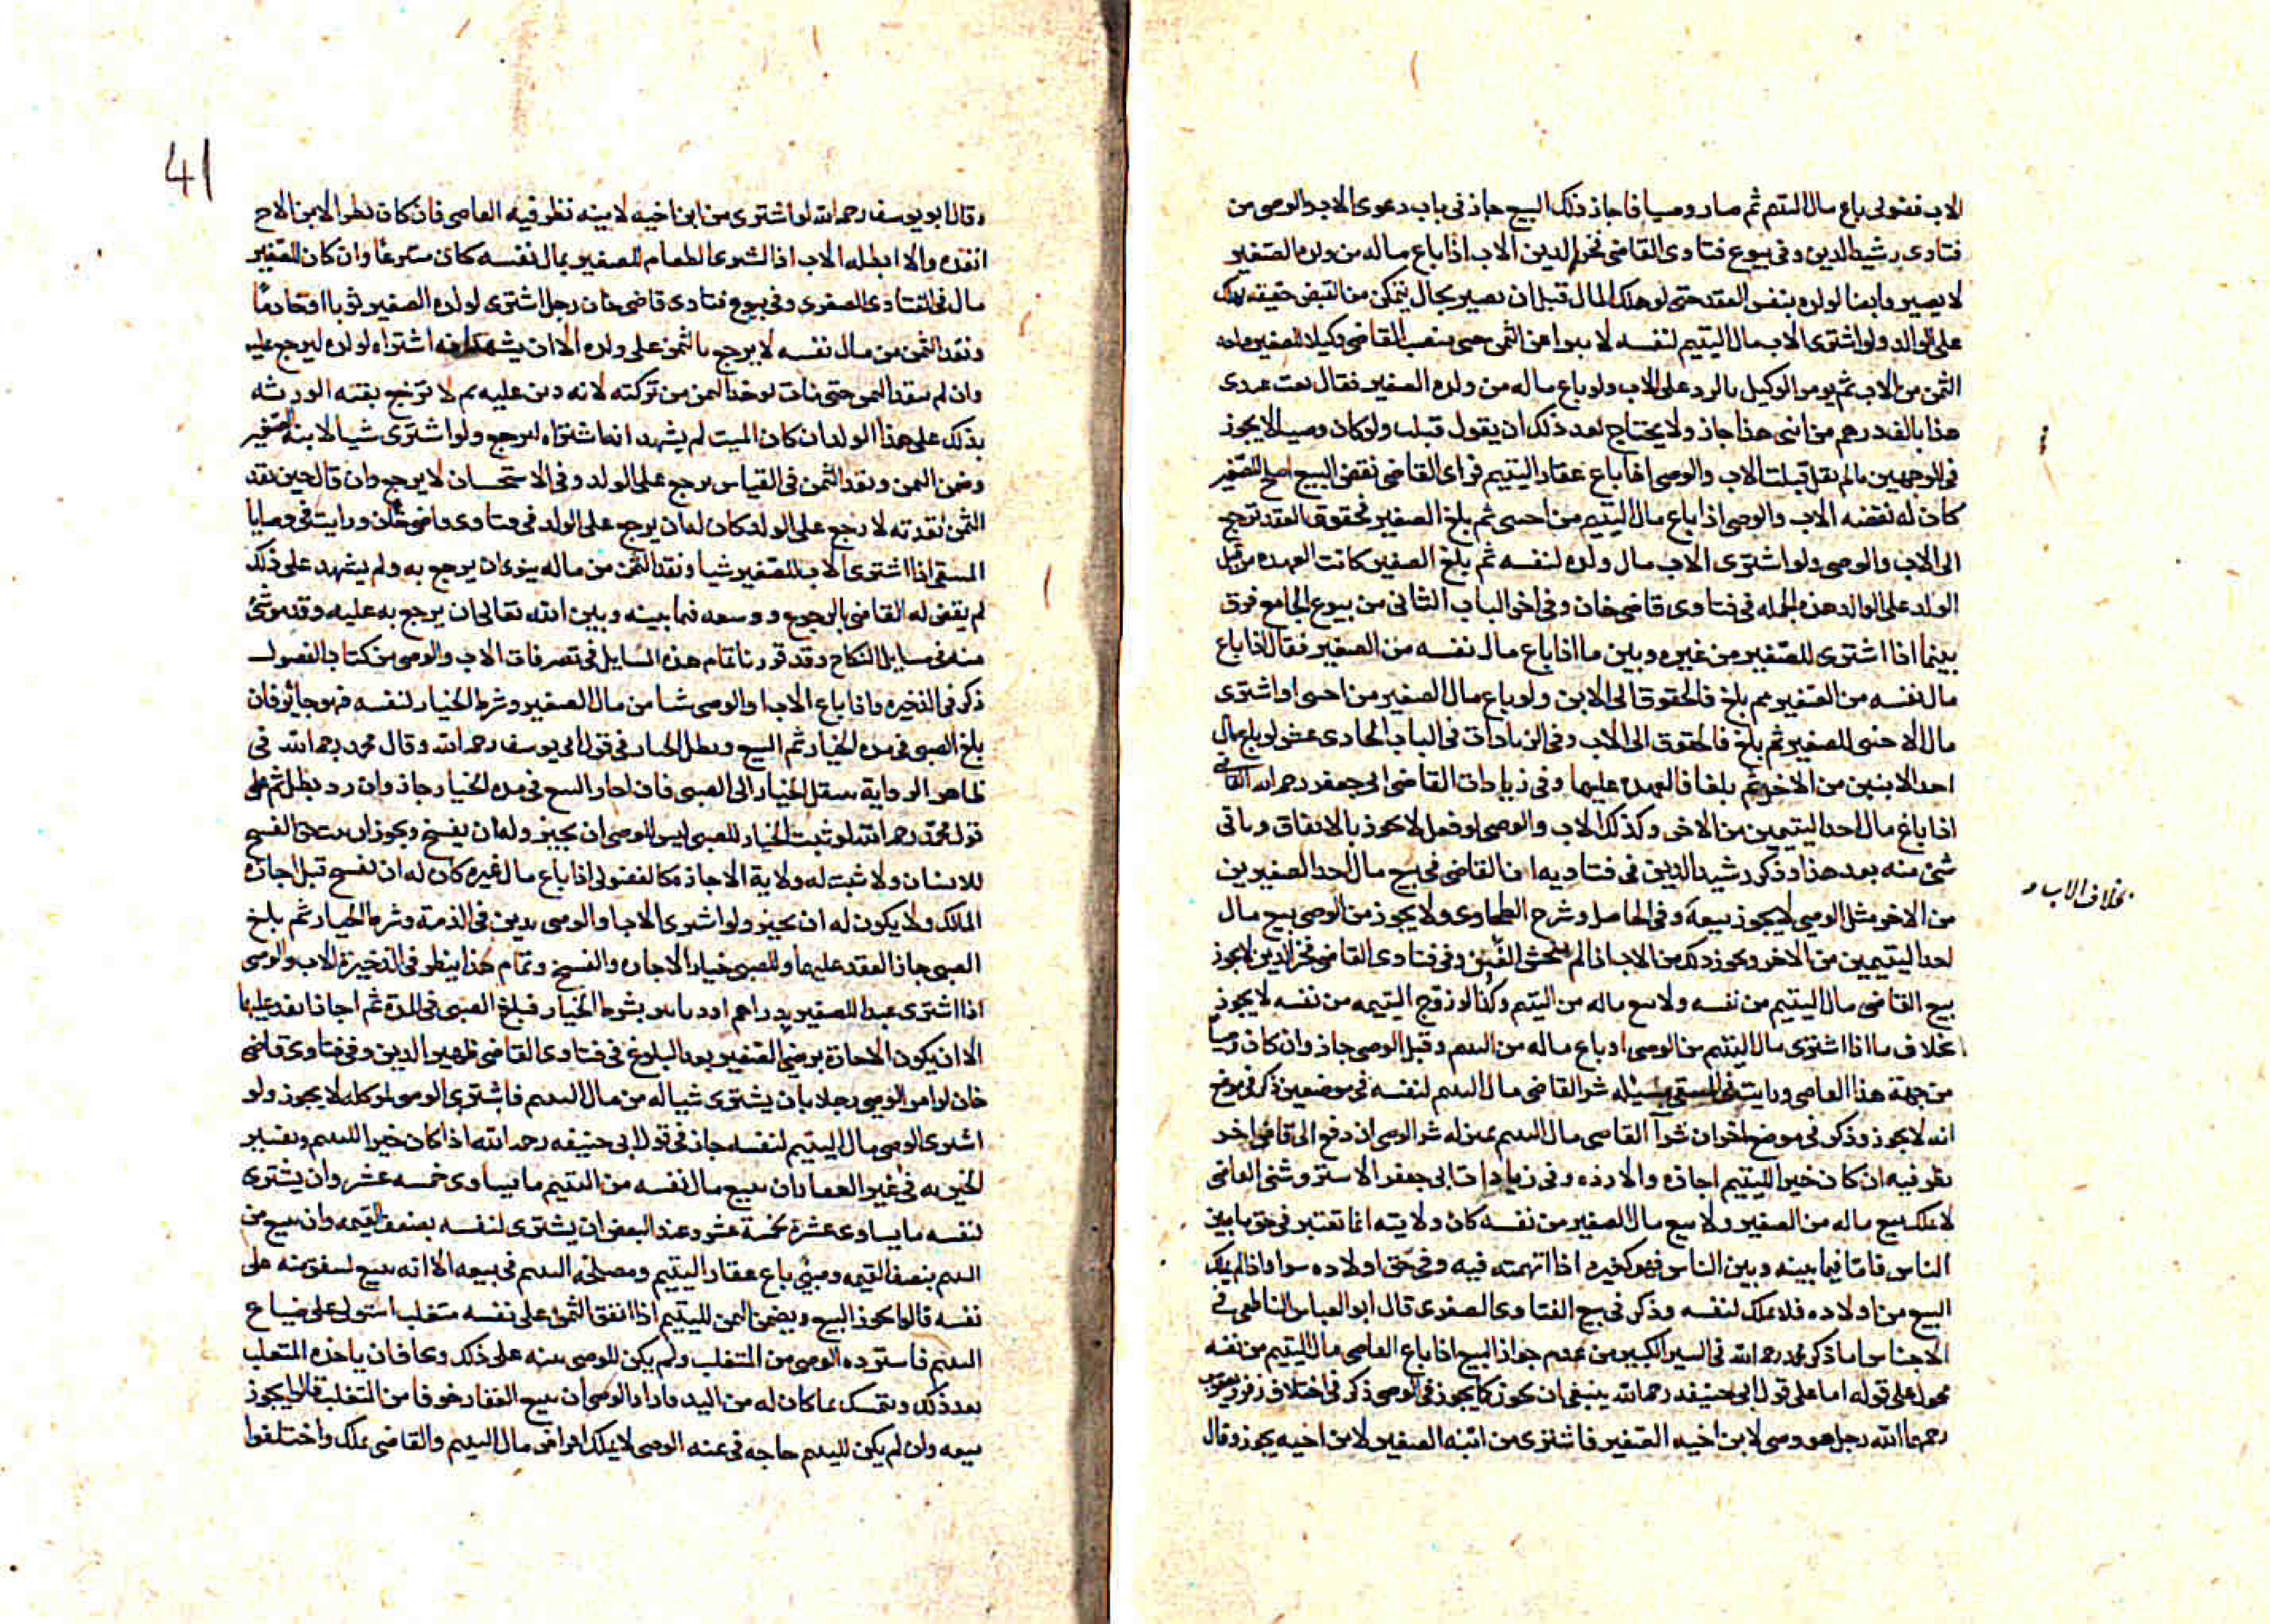 الاب فضولى باع مال اليتيم ثم صار وصيا فاجاز ذلك البيع جاز فى باب دعوى الاب والوصى من
فتاوى رشيد الدين وفى بيوع فتاوى القاضى فخر الدين الاب اذا باع ماله من ولده الصغير
لا يصير قابضا لولده بنفس العقد حتى لو هلك المال قبل ان يصير بحال يتمكن من القبض حقيقه يهلك
على الوالد ولو اشترى الاب مال اليتيم لنفسه لا يبرا عن الثمن حتى ينصب القاضى وكيلا للصغير ياخذ
الثمن من الاب ثم يومر الوكيل بالرد على الاب ولو باع ماله من ولده الصغير فقال بعت عبدى
هذا بالف درهم من ابنى هذا جاز ولا يحتاج بعد ذلك ان يقول قبلت ولو كان وصيا لا يجوز
فى الوجهين ما لم يقل قبلت الاب والوصى اذا باع عقار اليتيم فراى القاضى نقض البيع اصلح للصغير
كان له نقضه الاب والوصى اذا باع مال اليتيم من اجنبى ثم بلغ الصغير فحقوق العقد ترجع
الى الاب والوصى ولو اشترى الاب مال ولده لنفسه ثم بلغ الصغير كانت العهده من قبل
الولد على الوالد هذه الجمله فى فتاوى قاضى خان وفى اخر الباب الثانى من بيوع الجامع فرق
بينما اذا اشترى للصغير من غيره وبين ما اذا باع مال نفسه من الصغير فقال اذا باع
مال نفسه من الصغير ثم بلغ فالحقوق الى الابن ولو باع مال الصغير من اجنبى او اشترى
مال الاجنبى للصغير ثم بلغ فالحقوق الى الاب وفى الزيادات فى الباب الحادى عشر لو باع مال
احد الابنين من الاخر ثم بلغا فالعهده عليهما وفى زيادات القاضى ابى جعفر رحمه الله القاضى
اذا باع مال احد اليتيمين من الاخر وكذلك الاب والوصى لو فعل لا يجوز بالاتفاق وياتى
شئ منه بعد هذا وذكر رشيد الدين فى فتاويه ان القاضى فى بيع مال احد الصغيرين
من الاخر مثل الوصى لا يجوز بيعه وفى الحاصل وشرح الطحاوى ولا يجوز من الوصى بيع مال
بخلاف الاب
احد اليتيمين من الاخر ويجوز ذلك من الاب اذا لم يفحش الغبن وفى فتاوى القاضى فخر الدين لا يجوز
بيع القاضى مال اليتيم من نفسه ولا بيع ماله من اليتيم وكذا لو زوج اليتيمه من نفسه لا يجوز
بخلاف ما اذا اشترى مال اليتيم من الوصى او باع ماله من اليتيم وقبل الوصى جاز وان كان وصيا
من جهة هذا القاضى ورايت فى المنتقى شرا القاضى مال اليتيم لنفسه فى موضعين ذكر فى موضع
انه لا يجوز وذكر فى موضع اخر ان شرآ القاضى مال اليتيم بمنزله شرا الوصى ان دفع الى قاض اخر
نظر فيه ان كان خيرا لليتيم اجازه والا رده وفى زيادات ابى جعفر الاستروشنى القاضى
لا يملك بيع ماله من الصغير ولا بيع مال الصغير من نفسه كان ولايته انما تعتبر فى حق ما بين
الناس فاما فيما بينه وبين الناس فهو كغيره اذا اتهمته فيه وفى حق اولاده سوا واذا لم يملك
البيع من اولاده فلا يملك لنفسه وذكر فى بيع الفتاوى الصغرى قال ابو العباس الناطفى فى
الاجناس ما ذكر محمد رحمه الله فى السير الكبير من عدم جواز البيع اذا باع القاضى مال اليتيم من نفسه
محمول على قوله اما على قول ابى حنيفه رحمه الله ينبغى ان يجوز كما يجوز فى الوصى ذكر فى اختلاف زفر ويعقوب
رحمهما الله رجل هو وصى لابن اخيه الصغير فاشترى من ابنه الصغير لابن اخيه يجوز وقال
41
وقال ابو يوسف رحمه الله لو اشترى من ابن اخيه لابنه نظر فيه القاضى فان كان نظرا لابن الاخ
انفذه والا ابطله الاب اذا اشترى الطعام للصغير بمال نفسه كان متبرعا وان كان للصغير
مال فى الفتاوى الصغرى وفى بيوع فتاوى قاضى خان رجل اشترى لولده الصغير ثوبا او خادما
ونقد الثمن من مال نفسه لا يرجع بالثمن على ولده الا ان يشهد انه اشتراه لولده ليرجع عليه
وان لم ينقد الثمن حتى مات يوخذ الثمن من تركته لانه دين عليه ثم لا ترجع بقية الورثه
بذلك على هذا الولد ان كان الميت لم يشهد انه اشتراه ليرجع ولو اشترى شيا لابنه الصغير
وضمن الثمن ونقد الثمن فى القياس يرجع على الولد وفى الاستحسان لا يرجع وان قال حين نقد
الثمن نقدته لارجع على الولد كان له ان يرجع على الولد فى فتاوى قاضى خان ورايت فى وصايا
المنتقى اذا اشترى الاب للصغير شيا ونقد الثمن من ماله ينوى ان يرجع به ولم يشهد على ذلك
لم يقض له القاضى بالرجوع ووسعه فيما بينه وبين الله تعالى ان يرجع به عليه وقد مر شئ
منه فى مسايل النكاح وقد قررنا تمام هذه المسايل فى تصرفات الاب والوصى من كتاب الفصول
ذكر فى الذخيره واذا باع الاب او الوصى شيا من مال الصغير وشرط الخيار لنفسه فهو جائز فان
بلغ الصبى فى مده الخيار ثم البيع وبطل الخيار فى قول ابى يوسف رحمه الله وقال محمد رحمه الله فى
ظاهر الروايه ينتقل الخيار الى الصبى فان اجاز البيع فى مده الخيار جاز وان رد بطل ثم على
قول محمد رحمه الله لو ثبت الخيار للصبى ليس للوصى ان يجيز وله ان يفسخ ويجوز ان يثبت حق الفسخ
للانسان ولا يثبت له ولاية الاجازه كالفضولى اذا باع مال غيره كان له ان يفسخ قبل اجازه
المالك ولا يكون له ان يجيز ولو اشترى الاب او الوصى بدين فى الذمة وشرط الخيار ثم بلغ
الصبى جاز العقد عليهما وللصبى خيار الاجازه والفسخ وتمام هذا ينظر فى الذخيره الاب والوصى
اذا اشترى عبدا للصغير بدراهم او دنانير بشرط الخيار فبلغ الصبى فى المده ثم اجازا نفذ عليهما
الا ان يكون الاجازه برضى الصغير بعد البلوغ فى فتاوى القاضى ظهير الدين وفى فتاوى قاضى
خان لو امر الوصى رجلا بان يشترى شيا له من مال اليتيم فاشترى الوصى لموكله لا يجوز ولو
اشترى الوصى مال اليتيم لنفسه جاز فى قول ابى حنيفه رحمه الله اذا كان خيرا لليتيم وتفسير
الخيريه فى غير العقار ان يبيع مال نفسه من اليتيم ما يساوى خمسه عشر وان يشترى
لنفسه ما يساوى عشرة بخمسة عشر وعند البعض ان يشترى لنفسه بضعف القيمه وان يبيع من
اليتيم بنصف القيمه وصى باع عقار اليتيم ومصلحه اليتيم فى بيعه الا انه يبيع لينفق ثمنه على
نفسه قالوا يجوز البيع ويضمن الثمن لليتيم اذا انفق الثمن على نفسه متغلب استولى على ضياع
اليتيم فاسترده الوصى من المتغلب ولم يكن للوصى بينه على ذلك ويخاف ان ياخذه المتغلب
بعد ذلك ويتمسك بما كان له من اليد فاراد الوصى ان يبيع العقار خوفا من المتغلب قالوا يجوز
بيعه وان لم يكن لليتيم حاجه فى ثمنه الوصى لا يملك اقراض مال اليتيم والقاضى يملك واختلفوا